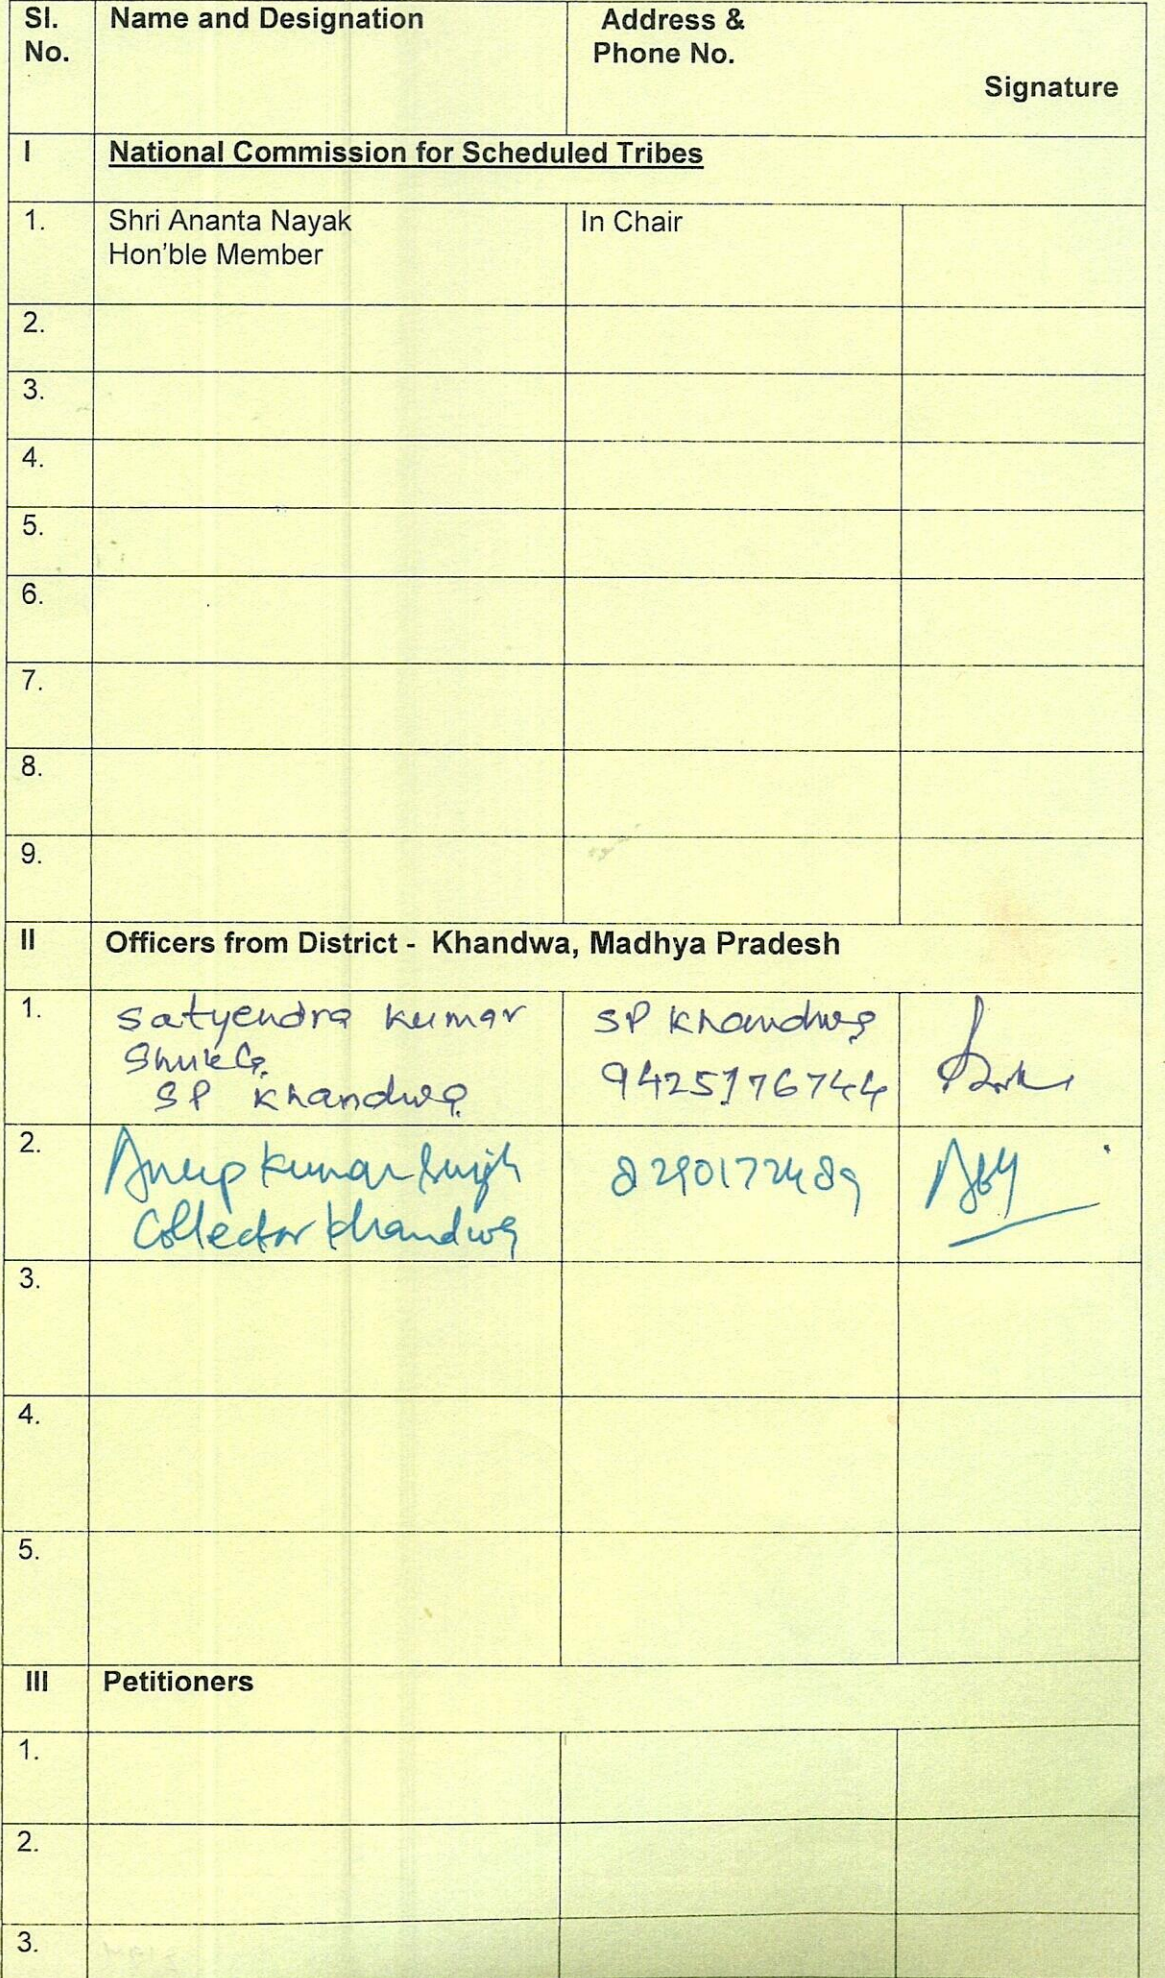 Sl. No.
Name and Designation
Address & Phone No.
Signature
I National Commission for Scheduled Tribes
1. Shri Ananta Nayak In Chair
Hon'ble Member
2.
3.
4.
5.
6.
7.
8.
9.
II Officers from District - Khandwa, Madhya Pradesh
1. Satyendra Kumar SP Khandwa
Shukla 9425176744
SP Khandwa
2. Anup Kumar Singh 8290172489
Collector Khandwa
3.
4.
5.
III Petitioners
1.
2.
3.